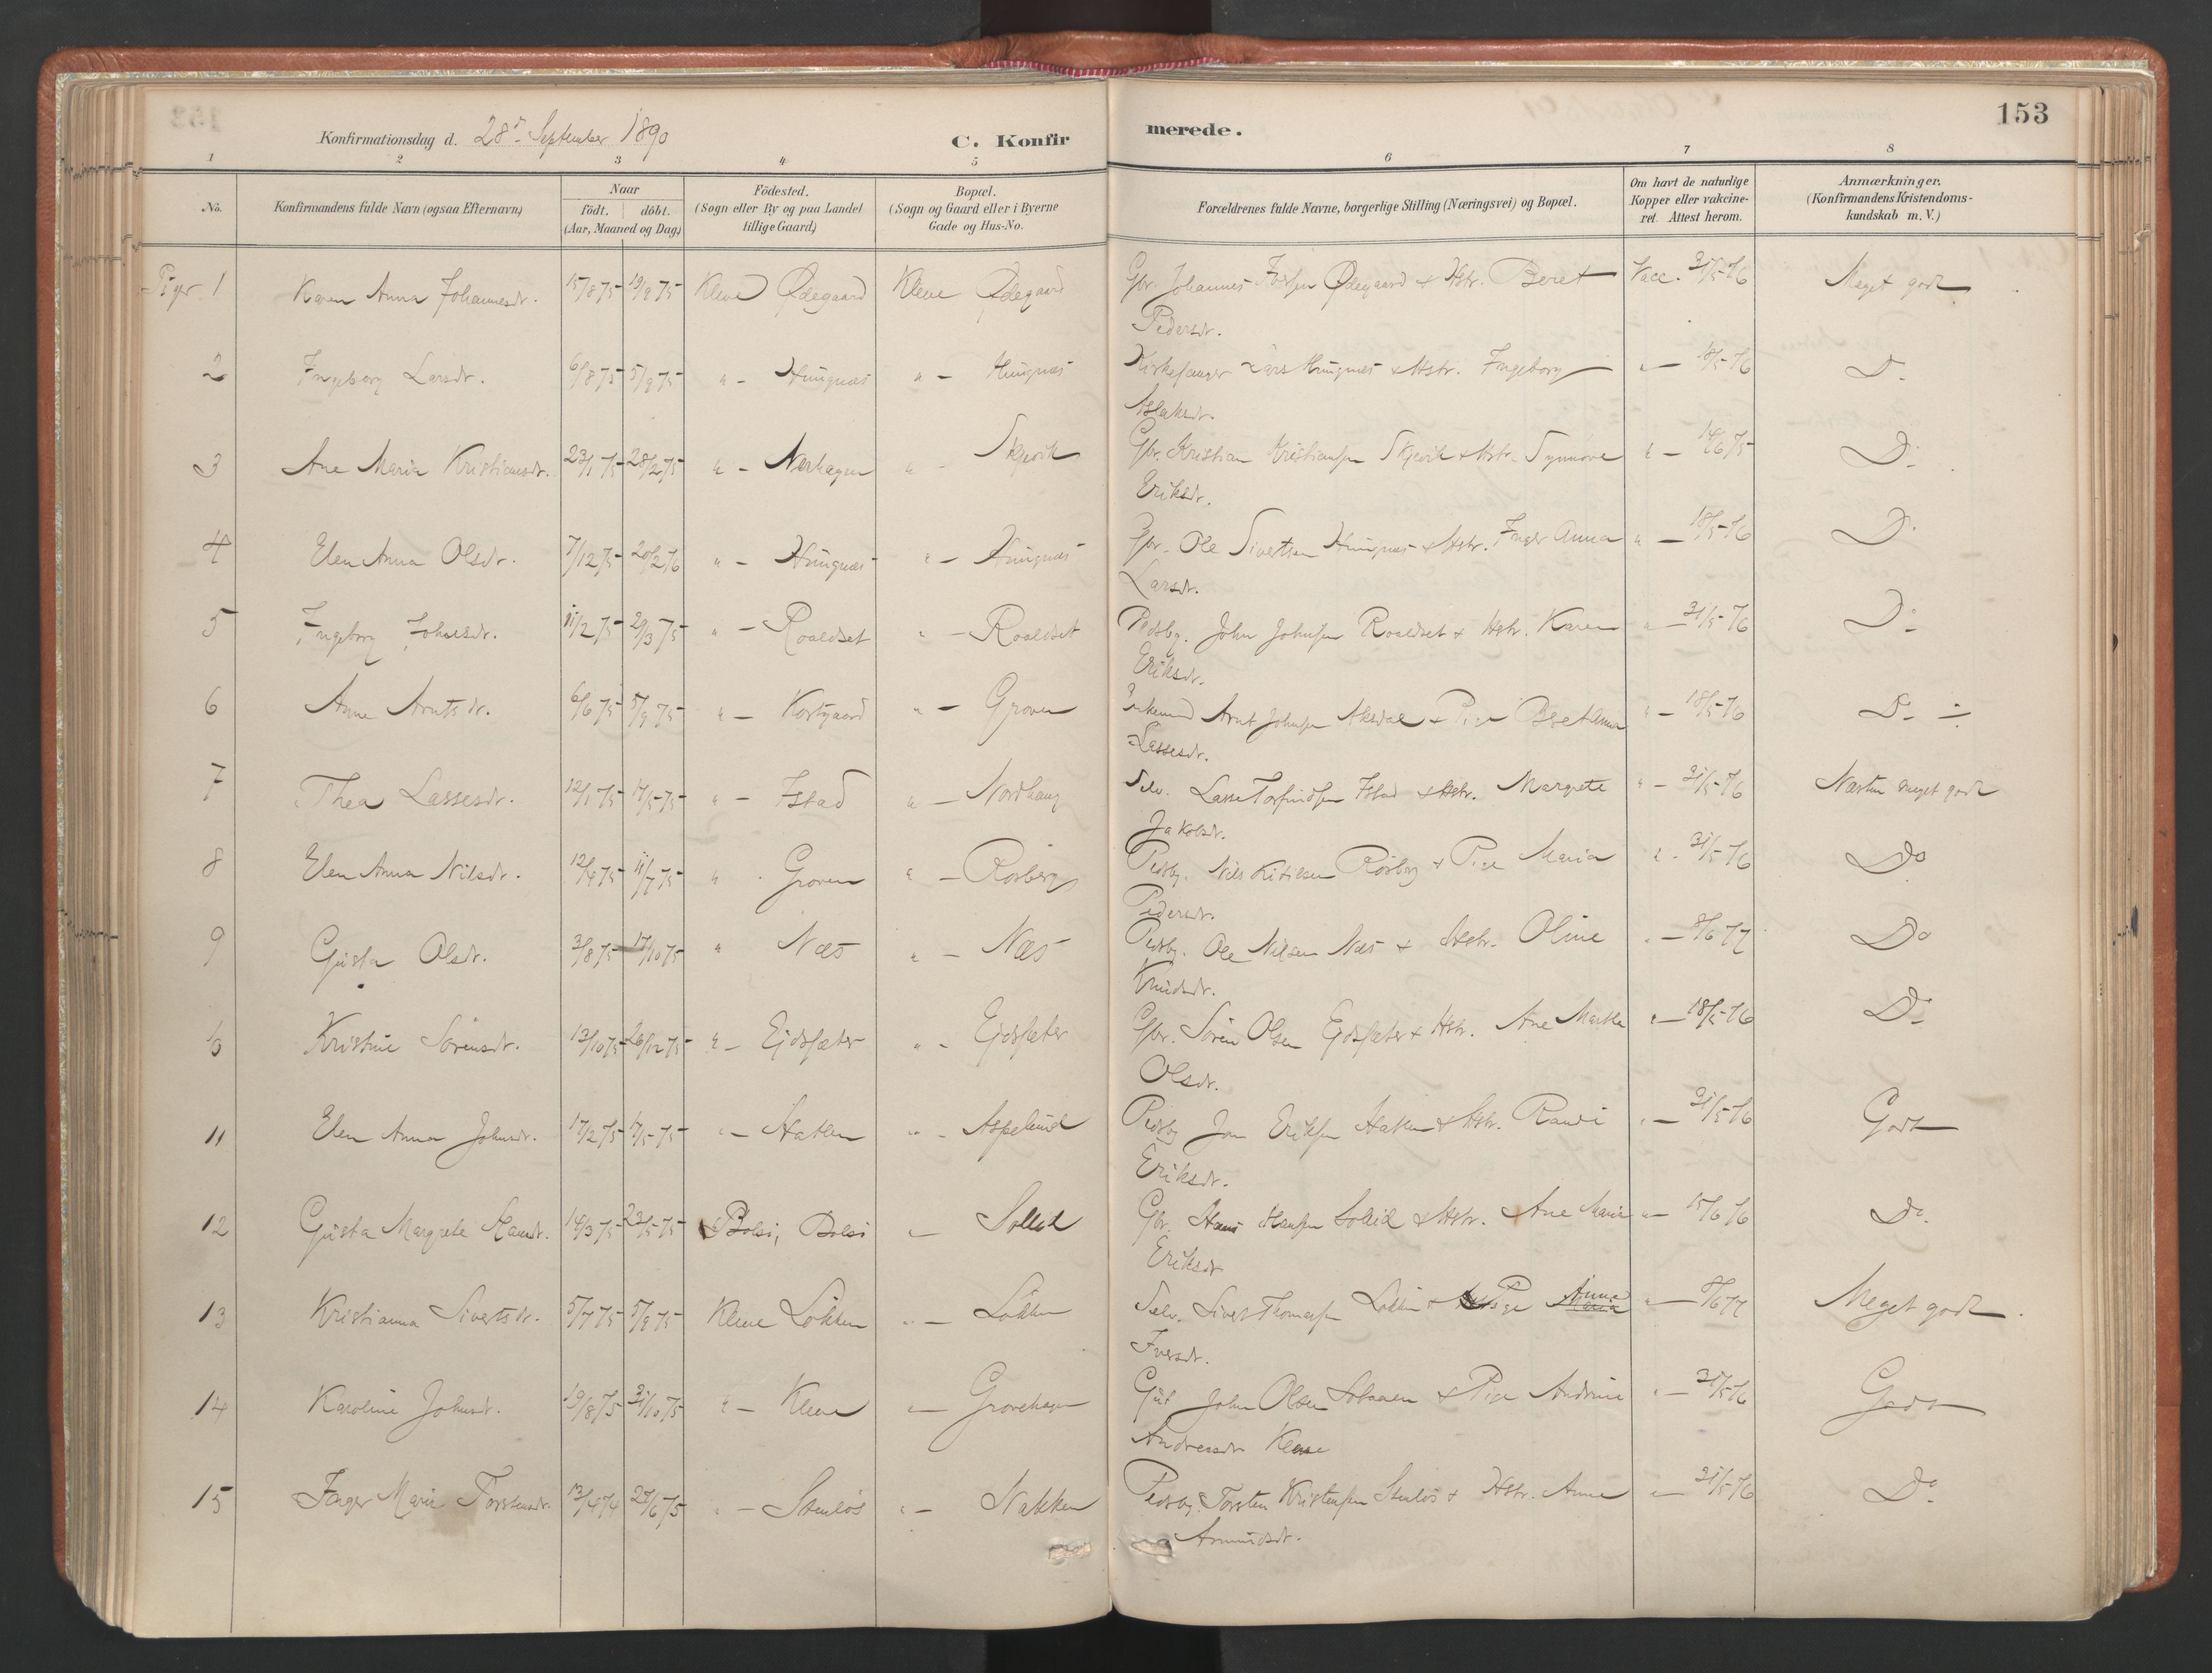 153
Konfirmationsdag d. 28de September 1890
C. Konfirmerede.
1 2 3 4 5 6 7 8
No.
Konfirmandens fulde Navn (ogsaa Efternavn)
Naar
födt. döbt.
(Aar, Maaned og Dag.)
Födested.
(Sogn eller By og paa Landet
tillige Gaard)
Bopæl.
(Sogn og Gaard eller i Byerne
Gade og Hus-No.
Forældrenes fulde Navne, borgerlige Stilling (Næringsvei) og Bopæl.
Om havt de naturlige
Kopper eller vakcine-
ret. Attest herom.
Anmærkninger.
(Konfirmandens Kristendoms-
kundskab m. V.)
Piger 1 Karen Anna Johannesdr. 15/8 75 19/9 75 Kleve Ødegaard Kleve Ødegaard Gbr. Johannes Ødegaard & Hstr. Beret Vacc. 31/5-76 Meget godt
Pedersdr.
2 Ingeborg Larsdr. 6/8 75 5/9 75 " - Hungnæs " - Hungnæs Kirkesanger Lars Hungnæs & Hstr. Ingeborg " - 18/5-76 Do
Aslaksdr.
3 Ane Maria Kristiansdr. 23/1 75 28/2 75 " - Nerhagen " - Skjevik Gbr. Kristian Kristiansen Skjevik & Hstr. Synnøve " - 14/6 75 Do
Eriksdr.
4 Elen Anna Olsdr. 7/12 75 20/2 76 " - Hungnæs " - Hungnæs Gbr. Ole Sivertsen Hungnæs & Hstr. Inger Anna " - 18/5-76 Do
Larsdr.
5 Ingeborg Johnsdr. 11/2 75 29/3 75 " - Roaldset " - Roaldset Pedsby. John Johnsen Roaldset & Hstr. Karen " - 31/5-76 Do
Eriksdr.
6 Anne Arntsdr. 6/6 75 5/9 75 " - Kortgaard " - Groven Arnt Johnsen Aksdal & Pige Beret Anna " - 18/5-76 Do ÷
Lassesdr.
7 Thea Lassesdr. 12/1 75 17/5 75 " - Istad " - Nordhaug Selv. Lasse Torfindsen Istad & Hstr. Margrete " - 31/5-76 Næsten meget godt
Jakobsdr.
8 Elen Anna Nilsdr. 12/4 75 11/7 75 " - Groven " - Rösberg Pedsby. Nils Rösberg & Pige Maria " - 31/5-76 Do
Pedersdr.
9 Gusta Olsdr. 3/8 75 17/10 75 " Næs " - Næs Pedsby. Ole Nilsen Næs & Hstr. Oline " - 8/6 77 Do
Knudsdr.
10 Kristine Sörensdr. 13/10 75 26/12 75 " - Ejdsæter " - Ejdsæter Gbr. Sören Olsen Ejdsæter & Hstr. Ane Martha " - 18/5-76 Do
Olsdr.
11 Elen Anna Johnsdr. 17/2 75 17/5 75 " - Hatlen " - Aspelund Pedsby Jon Eriksen Hatlen & Hstr. Randi " - 31/5-76 Godt
Eriksdr.
12 Gusta Margrete Hansdr. 14/3 75 23/5 75 Bolsö, Bolsö " - Sollid Gbr. Hans Hansen Sollid & Hstr. Ane Marie " - 15/6 76 Do
Eriksdr
13 Kristianna Sivertsdr. 5/7 75 5/9 75 Kleve Lökken " - Lökken Selv. Sivert Thomassen Lökken & Pige Anna Maria " - 8/6 77 Meget godt
Iversdr.
14 Karoline Johnsdr. 19/8 75 31/10 75 " - Kleve " - Grovehagen Gut John Olsen & Pige Andrine " - 31/5-76 Godt
Andreasdr Kleve
15 Inger Marie Torstensdr. 13/4 74 27/6 75 " - Stenlös " - Nakken Pedsby. Torsten Kristensen Stenlös & Hstr. Anne " - 31/5-76 Do
Amundsdr.